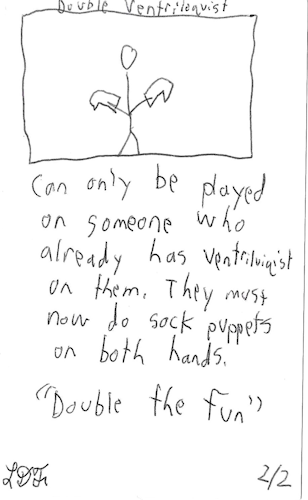 Double Ventriloquist
Can only be played
on someone who
already has Ventriloiqist
on them. They must
now do sock puppets
on both hands.
"Double the fun"
2/2